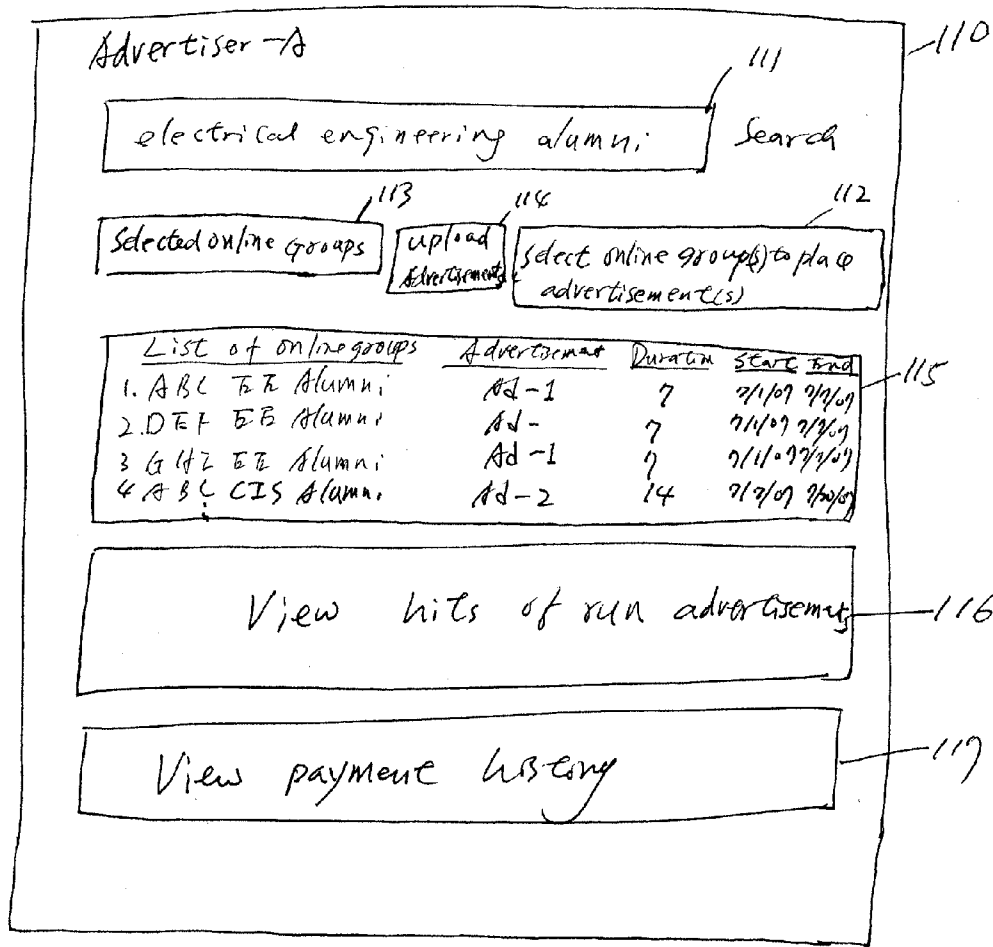 Advertiser-A
110
111
electrical engineering alumni Search
113 114 112
Selected online groups
upload
Advertisements
Select online group(s) to place
advertisement(s)
List of online groups Advertisement Duration Start End
115
1. ABC EE Alumni Ad-1 7 7/1/07 7/7/07
2. DEF EE Alumni Ad- 7 7/1/07 7/7/07
3 GHI EE Alumni Ad-1 7 7/1/07 7/7/07
4 ABC CIS Alumni Ad-2 14 7/7/07 7/20/07
View hits of run advertisements
116
View payment history
117